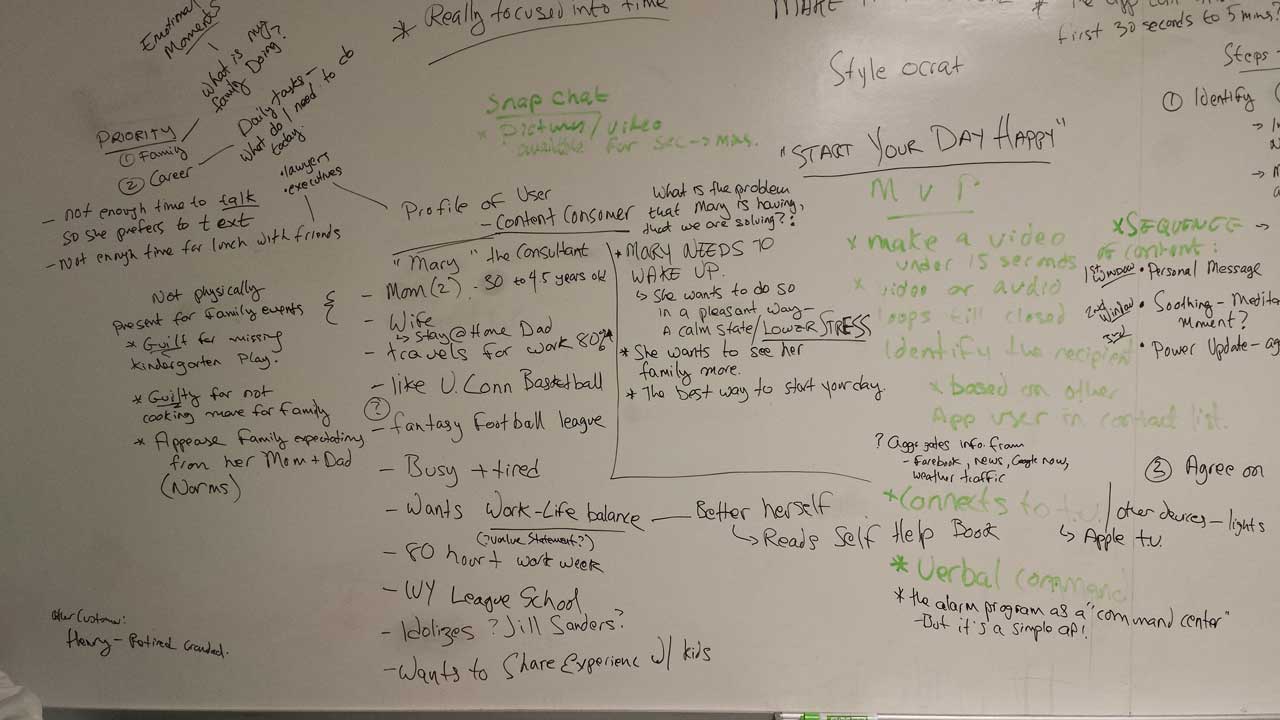 Emotional
Moments
What is my
family Doing?
Daily tasks –
what do I need to do
today
PRIORITY
① Family
② Career
• lawyers
• executives
– not enough time to talk
so she prefers to text
– Not enough time for lunch with friends
Not physically
present for Family events
* Guilt for missing
kindergarten Play?
* Guilty for not
cooking more for family
* Appease Family expectations
from her Mom + Dad
(Norms)
other Customer:
Henry – Retired
* Really focused into time
Snap chat
* Pictures / video
available for sec → mins.
Profile of User
– Content Consumer
"Mary" the Consultant
– Mom (2). 30 to 45 years old
– Wife
↳ Stay @ Home Dad
– travels for work 80%
– like U. Conn Basketball
?
– fantasy Football league
– Busy + tired
– Wants Work-Life balance — Better herself
↳ Reads Self Help Book
(?value Statement?)
– 80 hour + work week
– IVY League School
– Idolizes ? Jill Sanders?
– Wants to Share Experienc w/ kids
What is the problem
that Mary is having,
that we are solving?:
* MARY NEEDS TO
WAKE UP.
↳ She wants to do so
in a pleasant way –
A calm state / LOWER STRESS
* She wants to see her
family more.
* The best way to start your day.
MAKE
first 30 seconds to 5 mins?
Style ocrat
"START YOUR DAY HAPPY"
MVP
* make a video
under 15 seconds
* video or audio
loops till closed
Identify the recipient
* based on other
App user in contact list.
? Aggregates info. from
– Facebook, news, Google now,
weather traffic
* Connects to t.v.
↳ Apple t.v.
other devices – lights
* Verbal command
* the alarm program as a "command center"
– But it's a simple api.
Steps –
① Identify
* SEQUENCE →
of content:
1st window • Personal Message
2nd window • Soothing – Medita
Moment?
3rd • Power Update – ag
③ Agree on